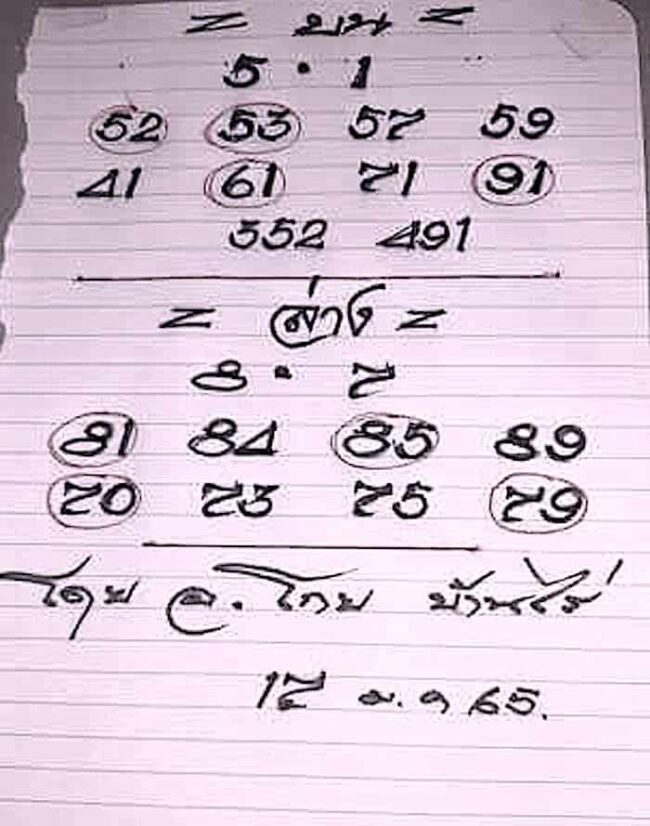 = บน =
5 · 1
52 53 57 59
41 61 71 91
552 491
= ล่าง =
8 · 7
81 84 85 89
70 73 75 79
โดย อ. โกย บ้านไร่
17 ม.ค 65.